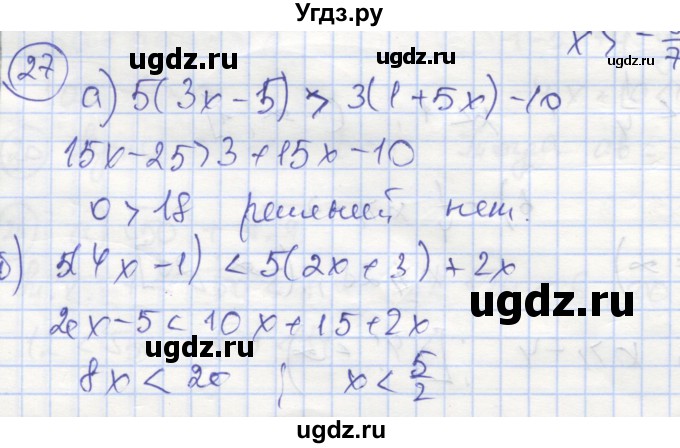 Угдз.ру
27
x > -
7
а) 5(3x - 5) > 3(1 + 5x) - 10
15x - 25 > 3 + 15x - 10
0 > 18 решений нет.
б) 5(4x - 1) < 5(2x + 3) + 2x
20x - 5 < 10x + 15 + 2x
8x < 20 ; x < 5/2
ugdz.ru
ugdz.ru
ugdz.ru
ugdz.ru
ugdz.ru
ugdz.ru
ugdz.ru
ugdz.ru
ugdz.ru
ugdz.ru